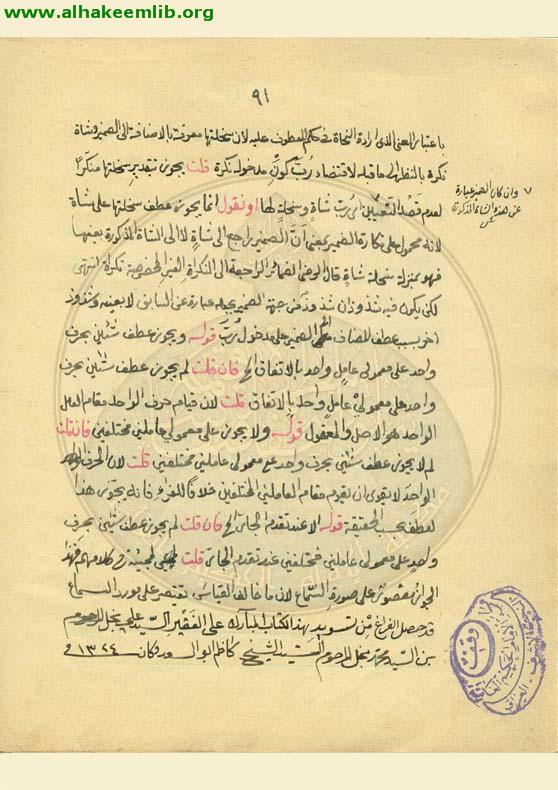 www.alhakeemlib.org
٩١
باعتبار المعنى اذ ارادة النجاة في حكم المعطوف عليه لان سخلتها معرفة بالاضافة الى الضمير وشاة
نكرة بالنظر الى ما قبله لاقتضاء رب كون مدخوله نكرة قلت يجوز بتقدير سخلتها منكرا
لعدم قصد التعيين اى رب شاة وسخلة لها او نقول انما يجوز عطف سخلتها على شاة
لانه محمول على نكارة الضمير بمعنى ان الضمير راجع الى شاة لا الى الشاة المذكورة بعينها
فهو بمنزلة سخلة شاة قال الرضى الضمائر الراجعة الى النكرة الغير المخصوصة نكرة انتهى
لكن يكون فيه شذوذان شذوذ من جهة الضمير بجعله عبارة عن السابق لا بعينه وشذوذ
اخر بسبب عطف المضاف الى الضمير على مدخول رب قوله ويجوز عطف شيئين بحرف
واحد على معمولي عامل واحد بالاتفاق الخ فان قلت لم يجوز عطف شيئين بحرف
واحد على معمولي عامل واحد بالاتفاق قلت لان قيام حرف الواحد مقام العامل
الواحد هو الاصل والمعقول قوله ولا يجوز على معمولي عاملين مختلفين فان قلت
لم لا يجوز عطف شيئين بحرف واحد على معمولي عاملين مختلفين قلت لان الحرف
الواحد لا يقوى ان يقوم مقام العاملين المختلفين خلافا للفراء فانه يجوز هذا
العطف بحسب الحقيقة قوله الا عند تقدم الجار الخ فان قلت لم يجوز عطف شيئين بحرف
واحد على معمولي عاملين مختلفين عند تقدم الجار قلت لمجيئه في كلامهم فهذا
الجواز مقصور على صورة السماع لان ما خالف القياس يقتصر على مورد السماع
قد حصل الفراغ من تسويد هذا الكتاب المبارك على الفقير السيد علي نجل المرحوم
بن السيد محمد نجل المرحوم السيد الشيخ كاظم ١٣٢٤
وان كان الضمير عبارة
عن هذه الشاة المذكورة